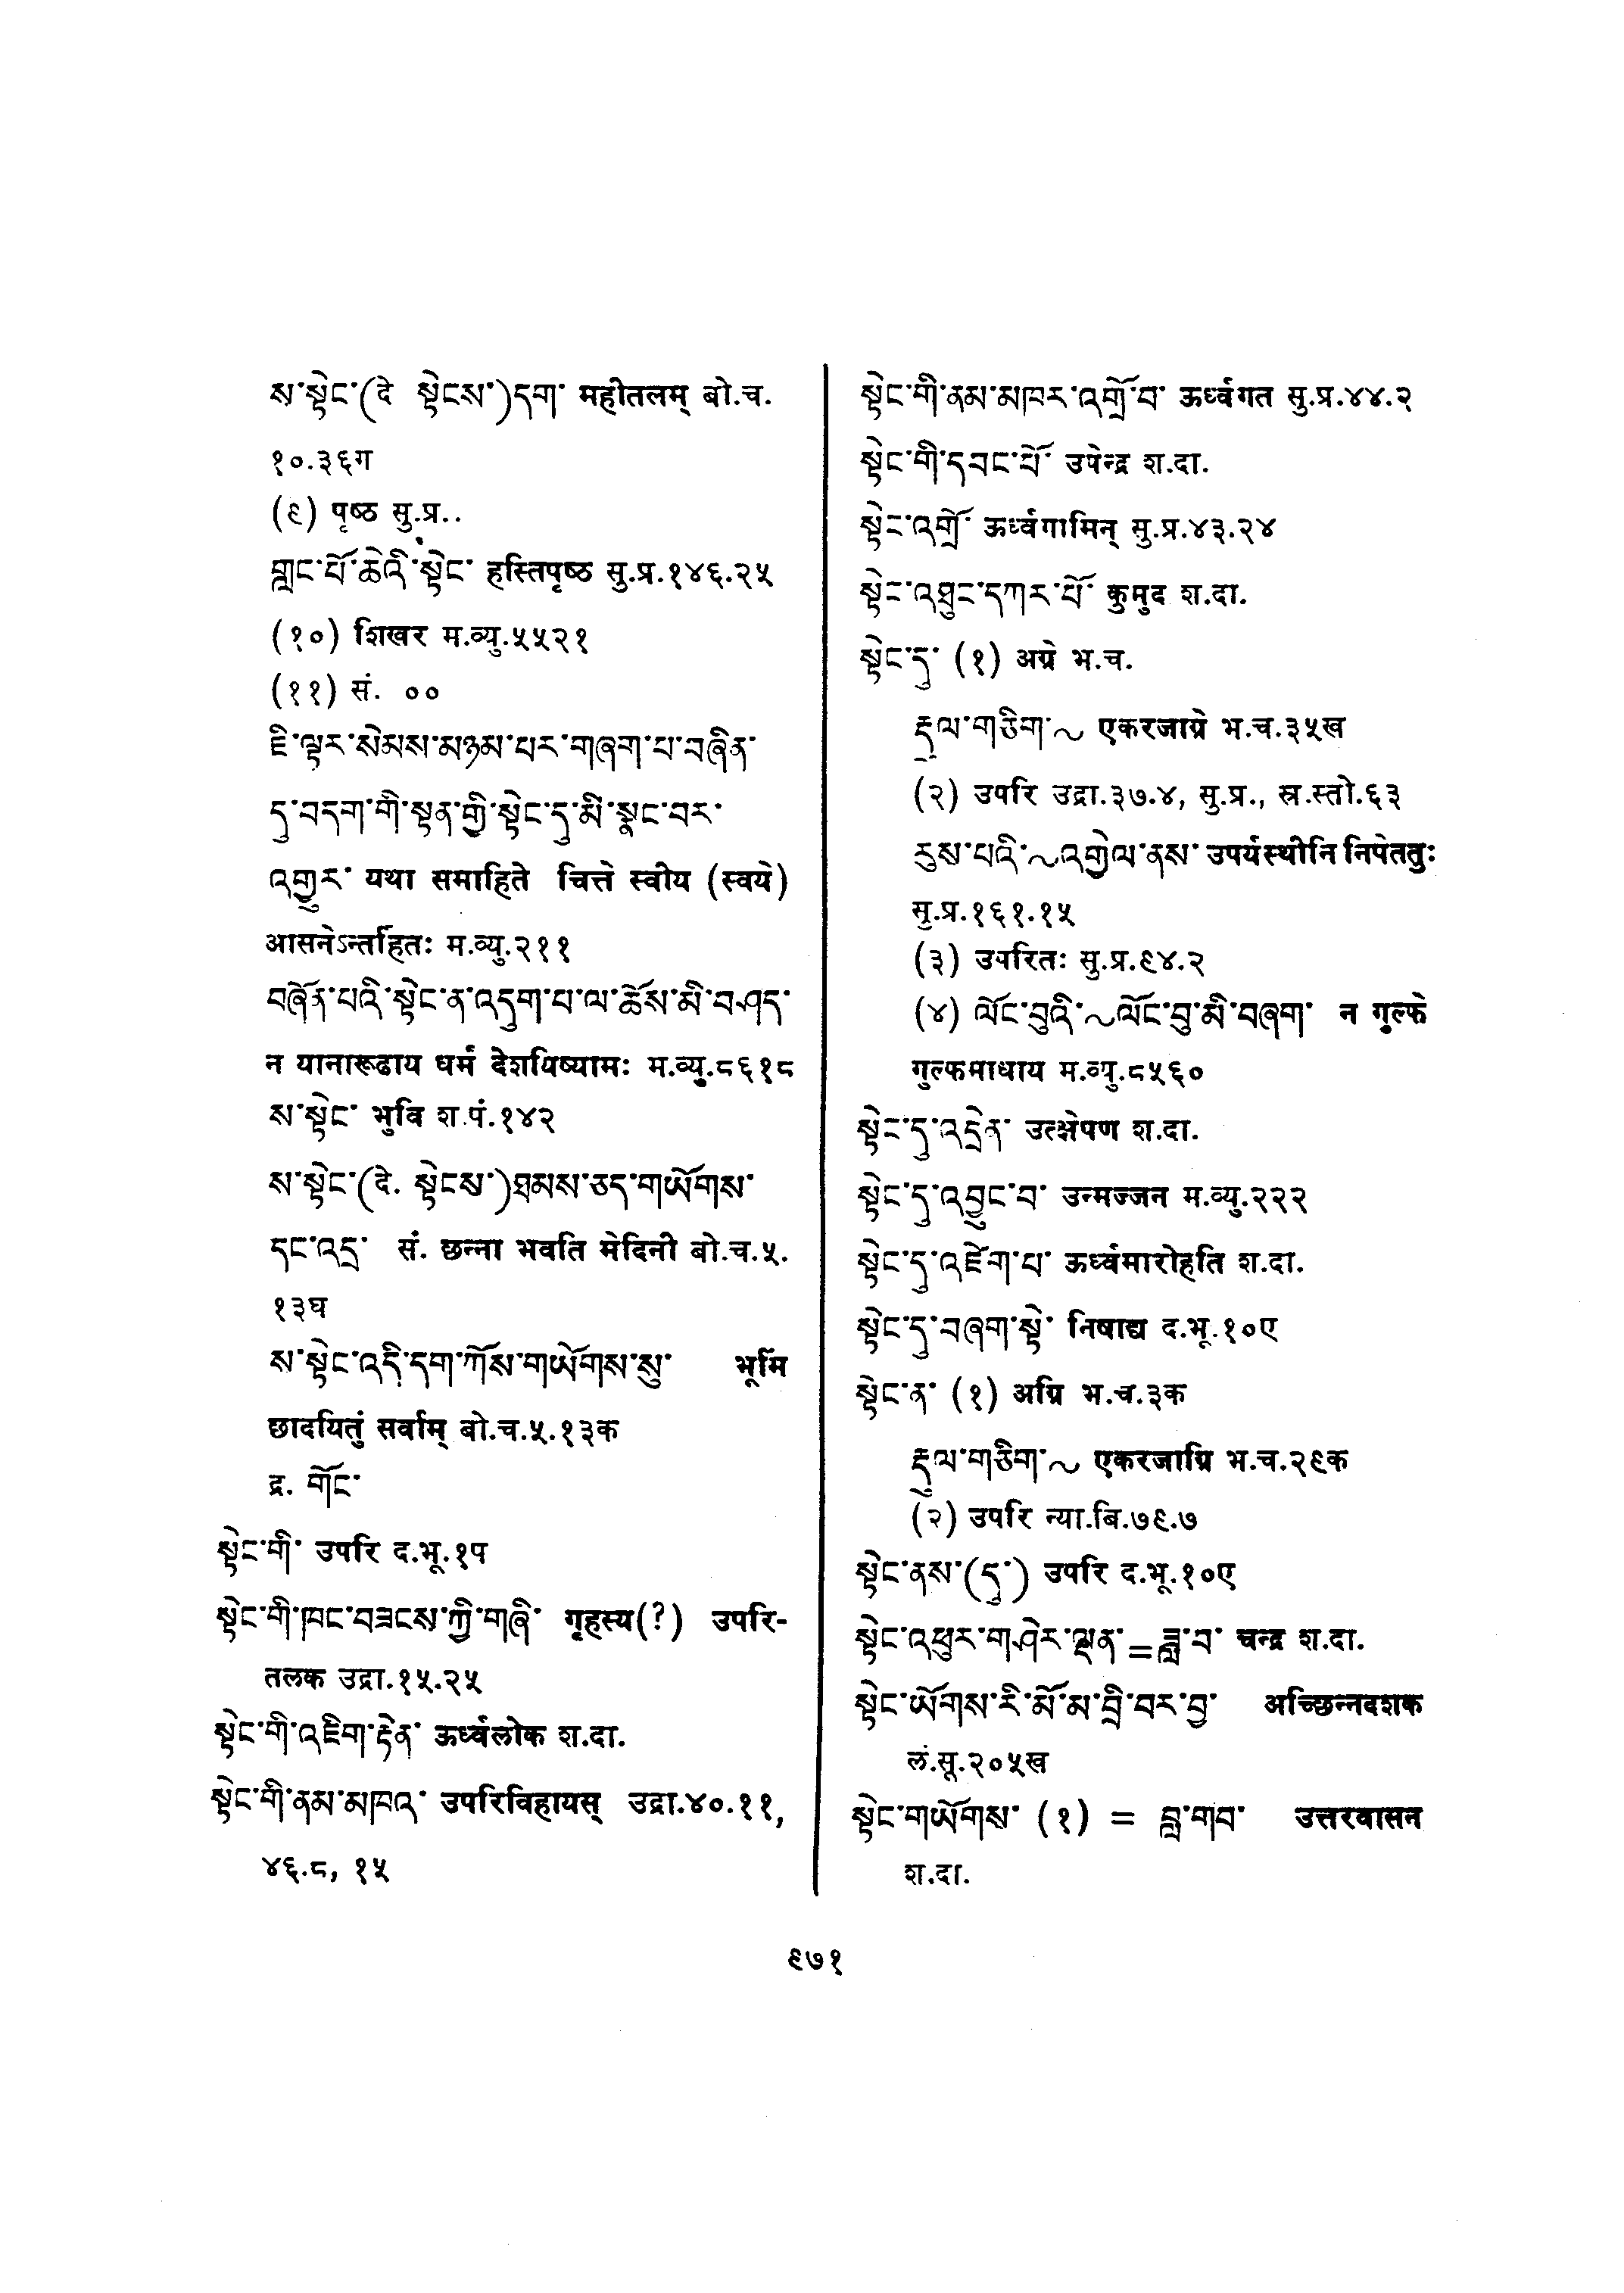 ས་སྟེང་(दे སྟེངས་)དག་ महीतलम् बो.च.
१०.३६ग
(९) पृष्ठ सु.प्र..
གླང་པོ་ཆེའི་སྟེང་ हस्तिपृष्ठ सु.प्र.१४६.२५
(१०) शिखर म.व्यु.५५२१
(११) सं. ००
ཇི་ལྟར་སེམས་མཉམ་པར་གཞག་པ་བཞིན་
དུ་བདག་གི་སྟན་གྱི་སྟེང་དུ་མི་སྣང་བར་
འགྱུར་ यथा समाहिते चित्ते स्वीय (स्वये)
आसनेऽन्तर्हितः म.व्यु.२११
བཞོན་པའི་སྟེང་ན་འདུག་པ་ལ་ཆོས་མི་བཤད་
न यानारूढाय धर्मं देशयिष्यामः म.व्यु.८६१८
ས་སྟེང་ भुवि श.पं.१४२
ས་སྟེང་(दे. སྟེངས་)ཐམས་ཅད་གཡོགས་
དང་འདྲ་ सं. छन्ना भवति मेदिनी बो.च.५.
१३घ
ས་སྟེང་འདི་དག་ཀོས་གཡོགས་སུ་ भूमिं
छादयितुं सर्वाम् बो.च.५.१३क
द्र. གོང་
སྟེང་གི་ उपरि द.भू.१प
སྟེང་གི་ཁང་བཟངས་ཀྱི་གཞི་ गृहस्य(?) उपरि-
तलक उद्रा.१५.२५
སྟེང་གི་འཇིག་རྟེན་ ऊर्ध्वलोक श.दा.
སྟེང་གི་ནམ་མཁའ་ उपरिविहायस् उद्रा.४०.११,
४६.८, १५
སྟེང་གི་ནམ་མཁར་འགྲོ་བ་ ऊर्ध्वंगत सु.प्र.४४.२
སྟེང་གི་དབང་པོ་ उपेन्द्र श.दा.
སྟེང་འགྲོ་ ऊर्ध्वंगामिन् सु.प्र.४३.२४
སྟེང་འཐུང་དཀར་པོ་ कुमुद श.दा.
སྟེང་དུ་ (१) अग्रे भ.च.
རྡུལ་གཅིག་～ एकरजाग्रे भ.च.३५ख
(२) उपरि उद्रा.३७.४, सु.प्र., स्र.स्तो.६३
རུས་པའི་～འགྱེལ་ནས་ उपर्यस्थीनि निपेततुः
सु.प्र.१६१.१५
(३) उपरितः सु.प्र.९४.२
(४) ལོང་བུའི་～ལོང་བུ་མི་བཞག་ न गुल्फे
गुल्फमाधाय म.व्यु.८५६०
སྟེང་དུ་འདྲེན་ उत्क्षेपण श.दा.
སྟེང་དུ་འབྱུང་བ་ उन्मज्जन म.व्यु.२२२
སྟེང་དུ་འཛེག་པ་ ऊर्ध्वमारोहति श.दा.
སྟེང་དུ་བཞག་སྟེ་ निषाद्य द.भू.१०ए
སྟེང་ན་ (१) अग्रि भ.च.३क
རྡུལ་གཅིག་～ एकरजाग्रि भ.च.२९क
(२) उपरि न्या.बि.७९.७
སྟེང་ནས་(དུ་) उपरि द.भू.१०ए
སྟེང་འཕུར་གཤེར་ལྡན་=ཟླ་བ་ चन्द्र श.दा.
སྟེང་ཡོགས་རི་མོ་མ་བྲི་བར་བྱ་ अच्छिन्नदशक
लं.सू.२०५ख
སྟེང་གཡོགས་ (१) = བླ་གབ་ उत्तरवासन
श.दा.
९७१